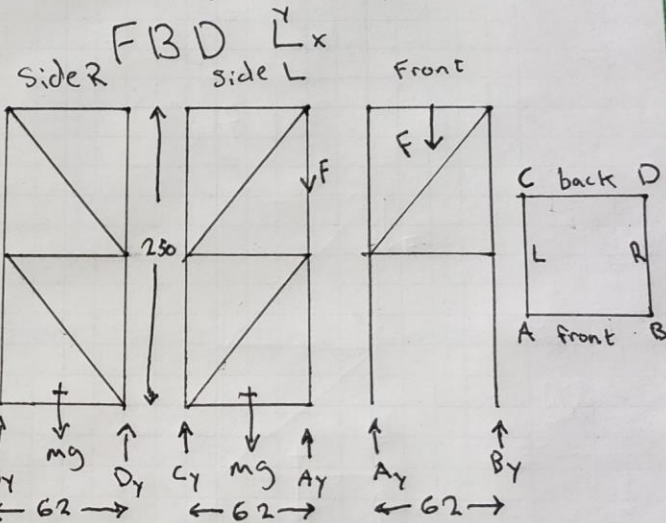 FBD
y
x
Side R
Side L
Front
F
F
C back D
250
L
R
A front B
mg
Dy
Cy
mg
Ay
Ay
By
62
62
62